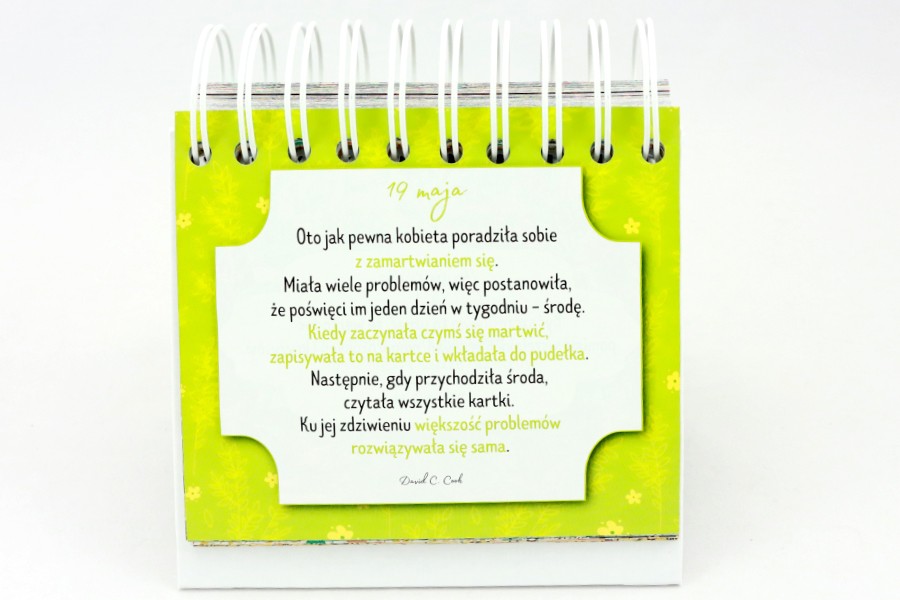 19 maja
Oto jak pewna kobieta poradziła sobie
z zamartwianiem się.
Miała wiele problemów, więc postanowiła,
że poświęci im jeden dzień w tygodniu – środę.
Kiedy zaczynała czymś się martwić,
zapisywała to na kartce i wkładała do pudełka.
Następnie, gdy przychodziła środa,
czytała wszystkie kartki.
Ku jej zdziwieniu większość problemów
rozwiązywała się sama.
David C. Cook